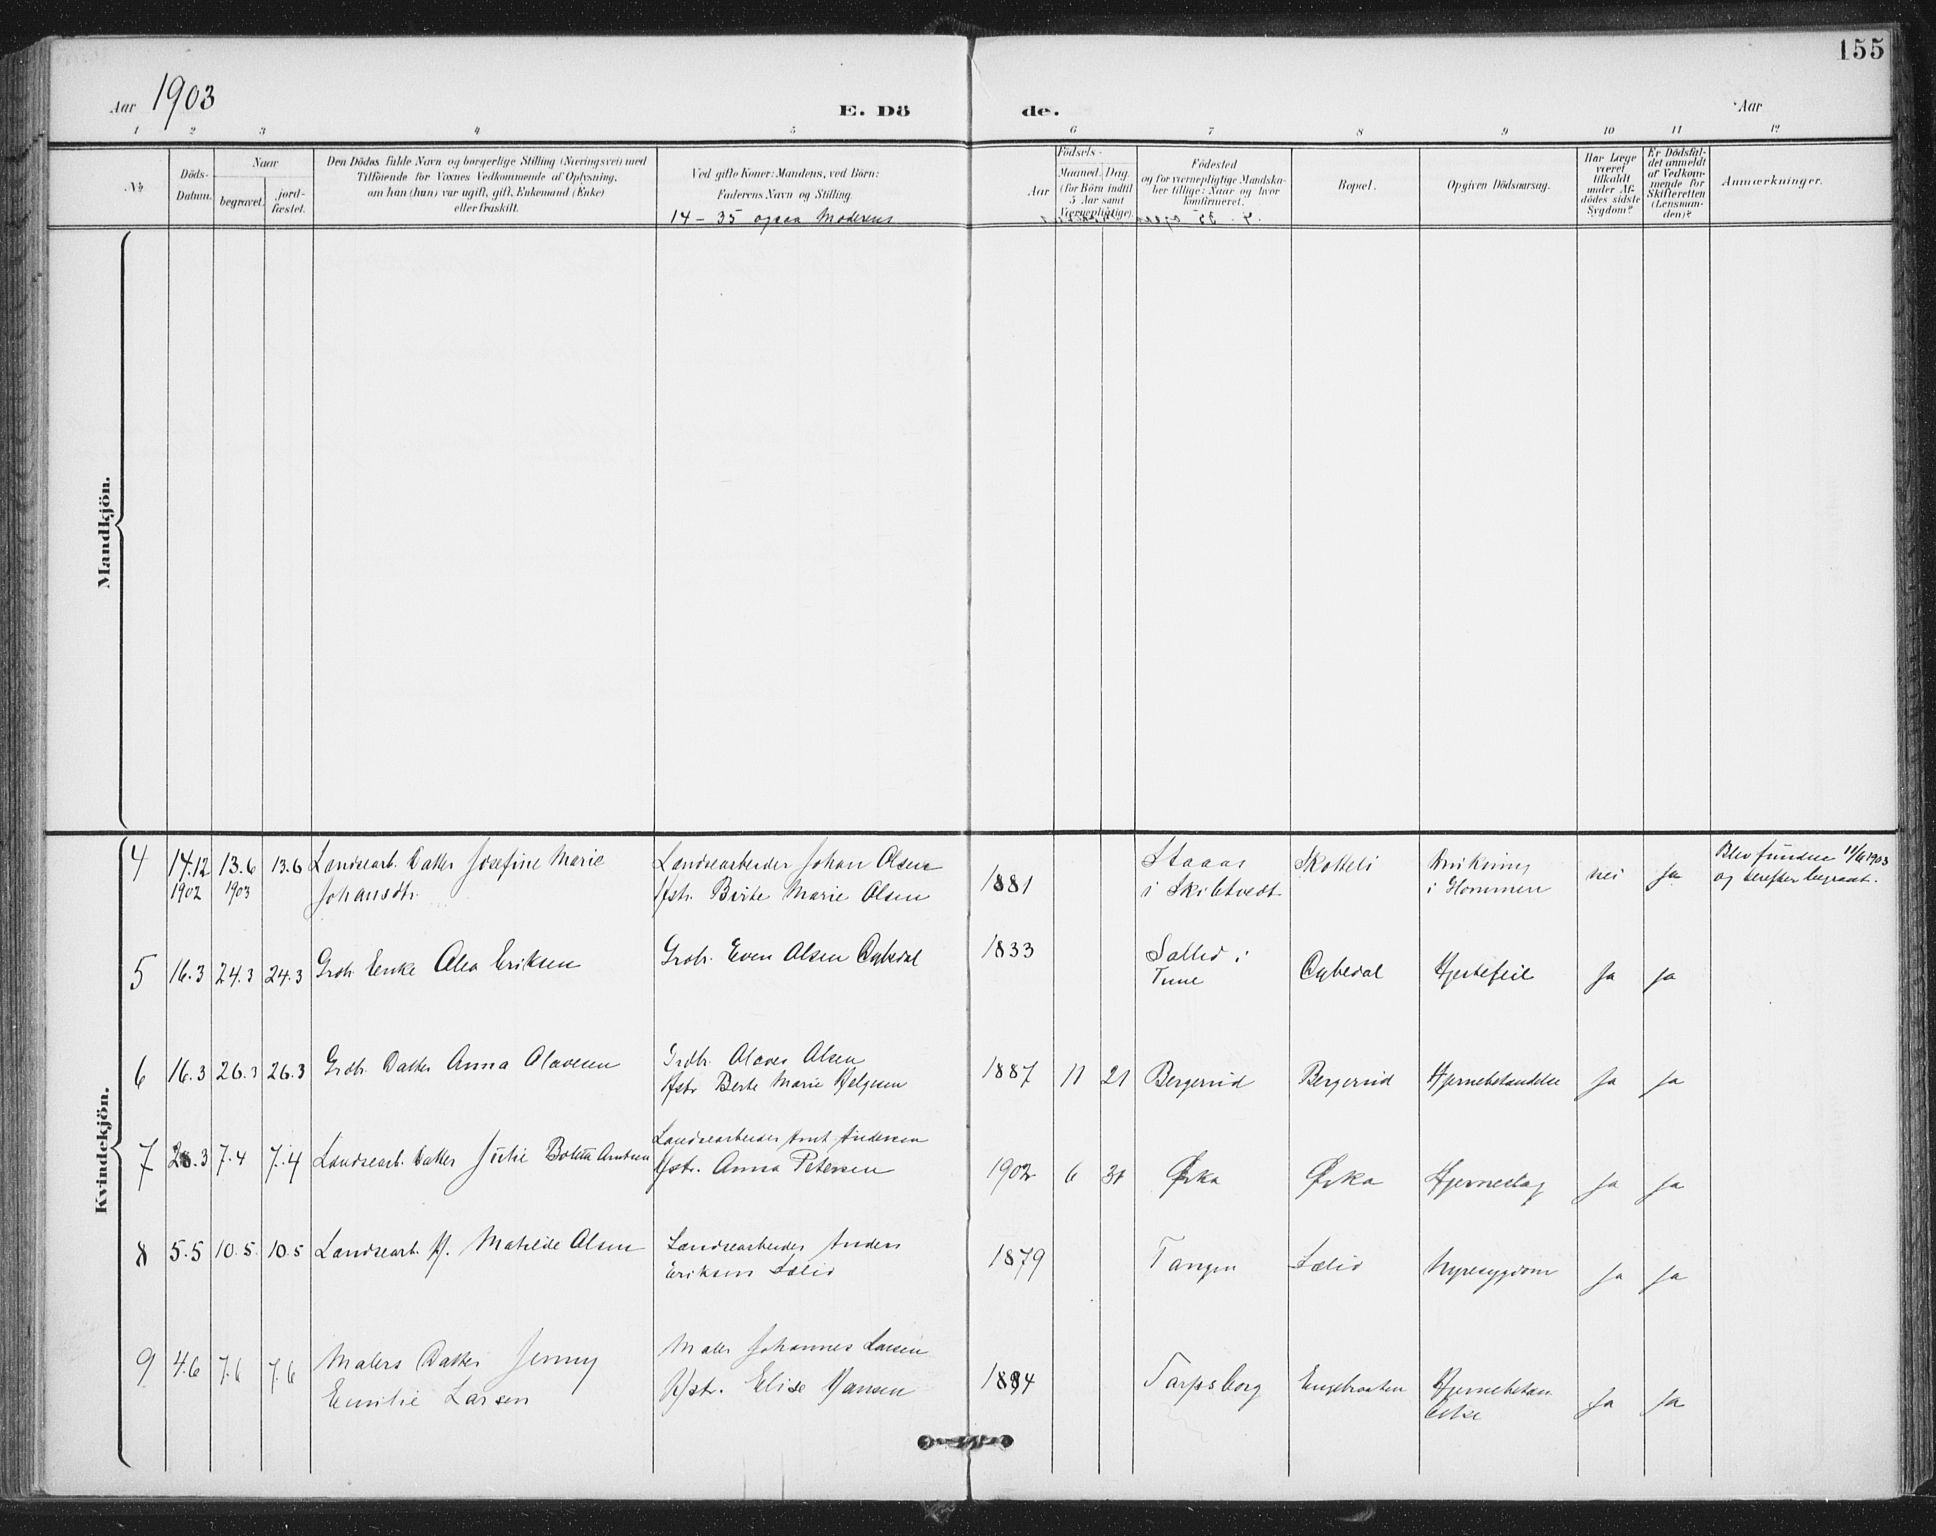 155
Aar 1903
E. Dö de.
Aar
1 2 3 4 5 6 7 8 9 10 11 12
No
Döds-
Datum.
Naar
begravet.
jord-
fæstet.
Den Dödes fulde Navn og borgerlige Stilling (Næringsvei) med
Tilföiende for Voxnes Vedkommende af Oplysning,
om han (hun) var ugift, gift, Enkemand (Enke)
eller fraskilt.
Ved gifte Koner: Mandens, ved Börn:
Faderens Navn og Stilling.
14 - 35 ogsaa Moderens
Födsels-
Aar
Maaned. Dag.
(for Börn indtil
5 Aar samt
Værnepligtige).
Födested
og for værnepligtige Mandska-
ber tillige: Naar og hvor
konfirmeret.
Bopæl.
Opgiven Dödsaarsag.
Har Læge
været
tilkaldt
under Af-
dödes sidste
Sygdom?
Er Dödsfal-
det anmeldt
af Vedkom-
mende for
Skifteretten
(Lensman-
den)?
Anmærkninger.
Mandkjön.
Kvindekjön.
4 14.12 13.6 13.6 Landsearb. Datter Josefine Marie Landsearbeider Johan Olsen 1881 Skotteli nei ja Blev funden 11/6 1903
1902 1903 Johansdtr. Hstr. Birte Marie Olsen i Skibtvedt i Glommen og derefter begravet.
5 16.3 24.3 24.3 Grdbr. Enke Olea Eriksen Grdbr. Even Olsen 1833 Sællid i
Tune Hjertefeil ja ja
6 16.3 26.3 26.3 Grdbr. Datter Anna Olavesen Grdbr. Olaves Olsen 1887 11 21 Bergerud Bergerud Hjernebetændelse ja ja
Hstr. Berte Marie Helgesen
7 28.3 7.4 7.4 Landsearb. Datter Julie Bolette Arntsen Landsearbeider Arnt Andersen
Hstr. Anna Petersen 1902 6 30 Ørka Ørka Hjerneslag ja ja
8 5.5 10.5 10.5 Landsearb. H. Matilde Olsen Landsearbeider Anders 1879 Tangen Sælid Nyresygdom ja ja
Eriksen Sælid
9 4.6 7.6 7.6 Malers Datter Jenny Maler Johannes Larsen
Emilie Larsen Hstr. Elise Hansen 1894 Sarpsborg Engebraaten Hjernebetæn
delse ja ja